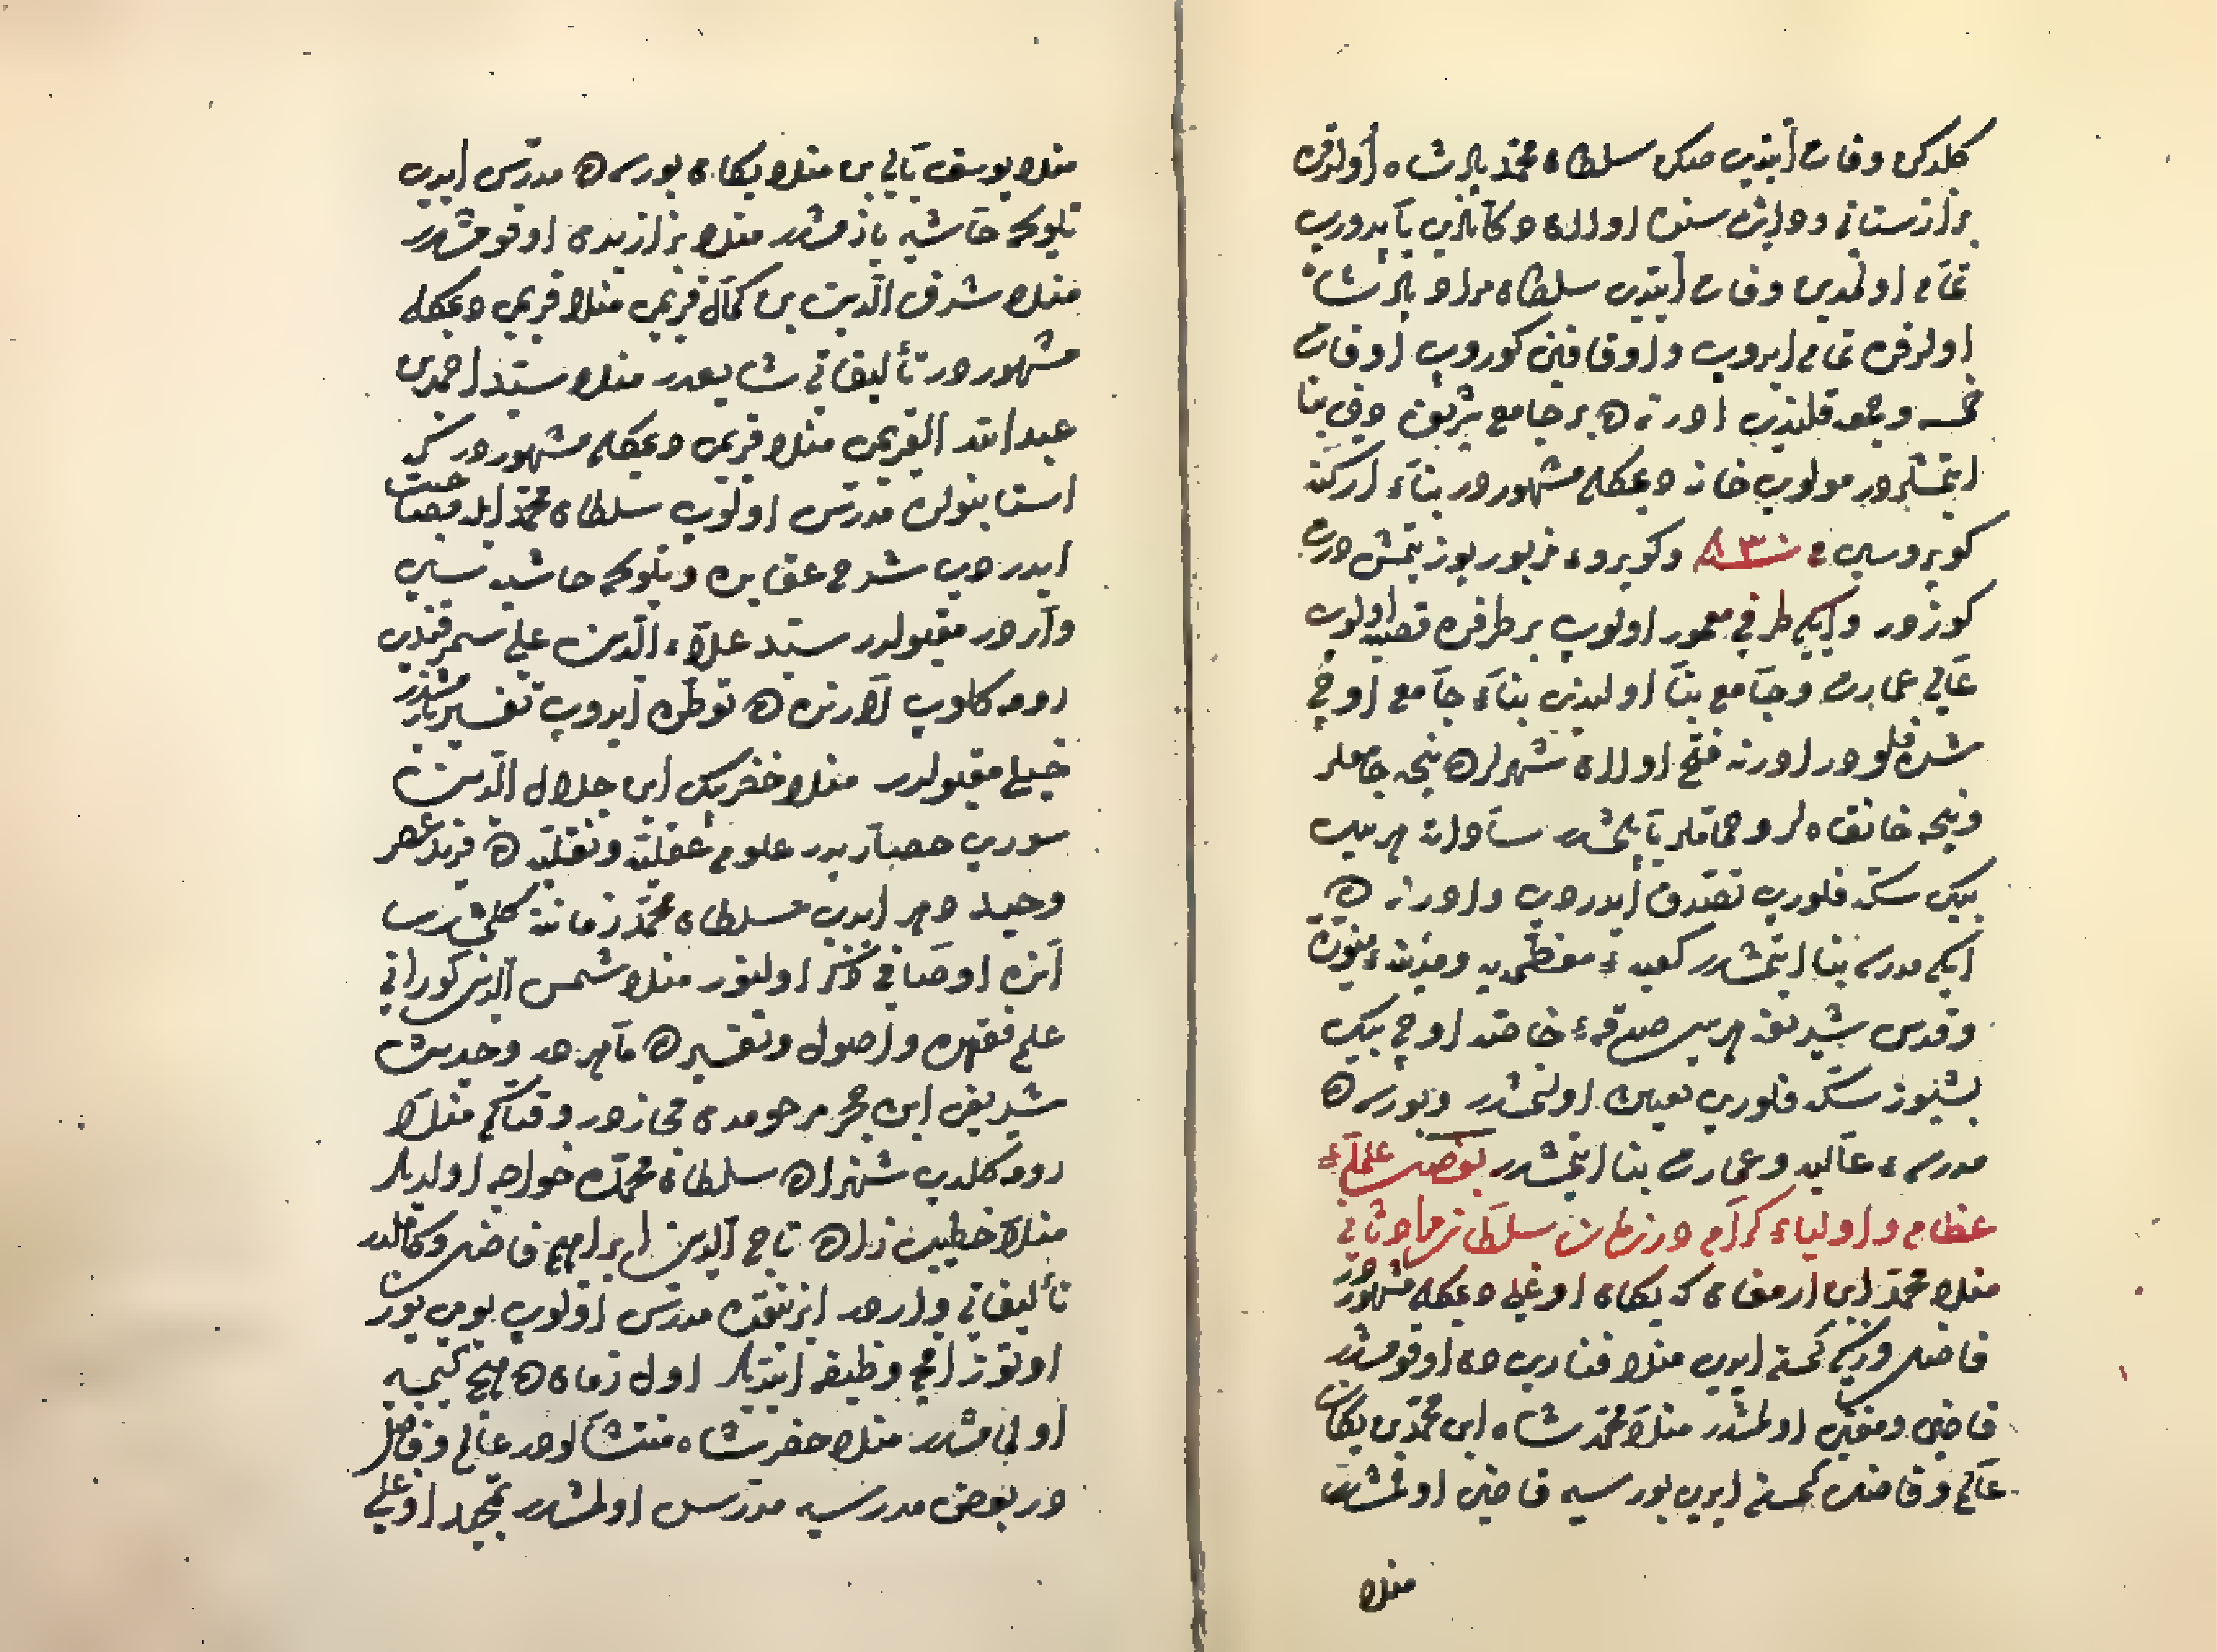 كلدكى وفات ايتدى صكره سلطان محمد پادشاه اولدقده
بر ازستانى دوليتى سنده اولان دكانلرى يابدوروب
تمام اولمدى وفات ايتدى سلطان مراد پادشاه
اولدقده تمام ايدوب و اوقافين كوروب اوقات
خمسه وجمعه قلندى ادرنه ده بر جامع شريف دخى بنا
ايتمشلردر مولوى خانه ديمكله مشهوردر بناء اركنه
كوپروسى سنه ٨٣٠ وكوپروء مزبور يوز يتمش درت
كوزدر وايكى طرفى معمور اولوب بر طرفده قصبه اولوب
عالى عمارت وجامع بنا اولندى بناء جامع اوچ
شرفه لودر ادرنه فتح اولان شهرلرده نيجه جامعلر
ونيجه خانقاه لر وحماملر يابلمشدر ساداته هر ييل
بيك سكه فلورى تصدق ايدردى وادرنه ده
ايكى مدرسه بنا ايتمشدر كعبهء معظمه يه ومدينهء منوره
وقدس شريفه هر ييل صدقهء خاصه اوچ بيك
بشيوز سكه فلورى تعيين اولنمشدر وبورسه ده
مدرسهء عاليه وعمارت بنا ايتمشدر بعض علماء
عظام واولياء كرام در زمان سلطان مراد ثانى
منلا محمد ابن ارمغان كه يكان اوغلى ديمكله مشهوردر
فاضل وزكى كمسنه ايدى منلا فنارى دن اوقومشدر
قاضى ومفتى اولمشدر منلا محمد شاه ابن محمد بن يكان
عالم وفاضل كمسنه ايدى بورسيه قاضى اولمشدر
منلا
منلا يوسف بالى بن منلا يكان بورسه ده مدرس ايدى
تلويحه حاشيه يازمشدر منلا بزازيدن اوقومشدر
منلا شرف الدين بن كمال قريمى منلا قريمى ديمكله
مشهوردر تأليفاتى شايعدر منلا سيد احمد بن
عبد الله القريمى منلا قريمى ديمكله مشهوردر كه
استانبولده مدرس اولوب سلطان محمد ايله مصاحبت
ايدردى شرح عقايده وتلويحه حاشيه سى
واردر مقبولدر سيد علاء الدين على سمرقندى
رومه كلوب لارنده ده توطن ايدوب تفسير يازمشدر
خيلى مقبولدر منلا خضر بك ابن جلال الدين
سورى حصاريدر علوم عقليه ونقليه ده فريد عصر
وحيد دهر ايدى سلطان محمد زماننه كلمشدر
آنده اوصافى ذكر اولنور منلا شمس الدين كورانى
علم فقهده واصول وتفسيرده ماهردر وحديث
شريفى ابن حجر مرحومدن مجازدر وقتاكه منلا
رومه كلدى شهزاده سلطان محمده خواجه اولديلر
منلا خطيب زاده تاج الدين ابراهيم فاضل وكاملدر
تأليفاتى واردر ازنيقده مدرس اولوب يومى يوز
اوتوز اقچه وظيفه ايتديلر اول زمانده هيچ كيمسه يه
اولمامشدر منلا خضر شاه منتشالودر عالم وفاضل
در بعض مدرسيه مدرس اولمشدر محمد اوغلى